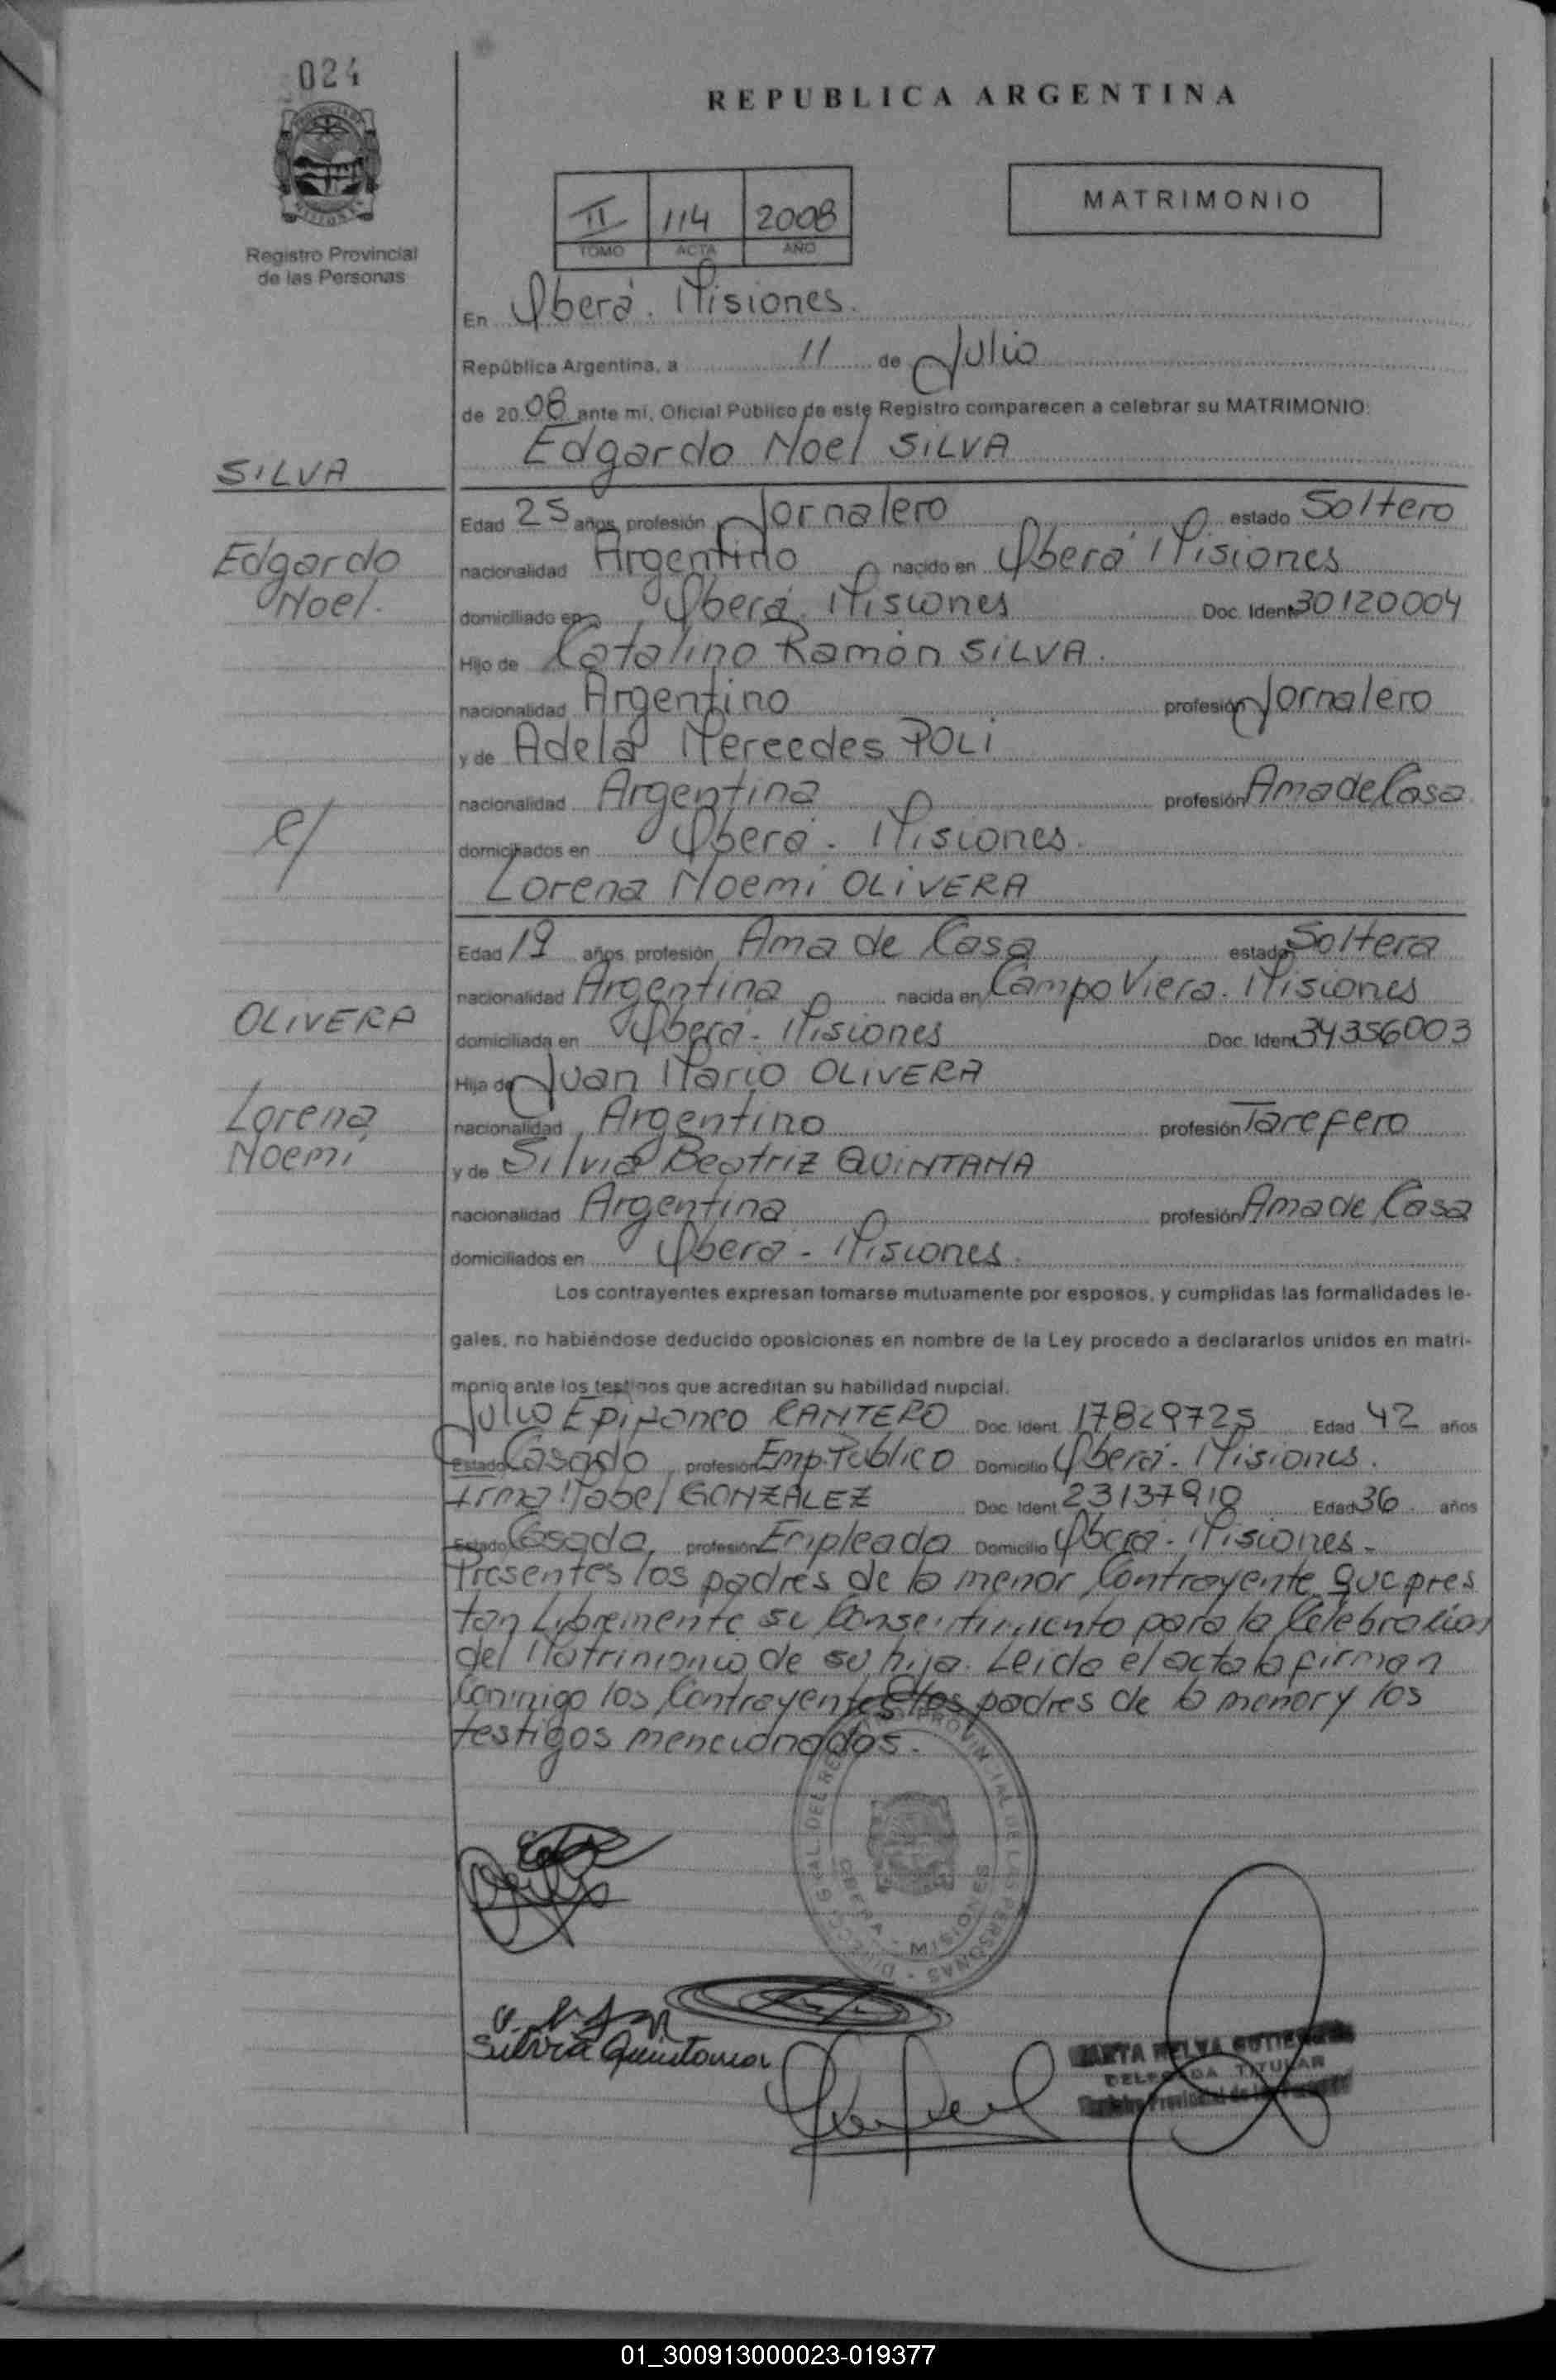 024
REPUBLICA ARGENTINA
Registro Provincial
de las Personas
II 114 2008
TOMO ACTA AÑO
MATRIMONIO
En Oberá. Misiones.
República Argentina, a 11 de Julio
de 2008 ante mí, Oficial Público de este Registro comparecen a celebrar su MATRIMONIO:
Edgardo Noel SILVA
SILVA
Edad 25 años, profesión Jornalero estado Soltero
Edgardo
Noel.
nacionalidad Argentino nacido en Oberá Misiones
domiciliado en Oberá. Misiones Doc. Ident. 30120004
Hijo de Catalino Ramón SILVA.
nacionalidad Argentino profesión Jornalero
y de Adela Mercedes POLI
nacionalidad Argentina profesión Ama de Casa
c/
domiciliados en Oberá - Misiones.
Lorena Noemi OLIVERA
Edad 19 años, profesión Ama de Casa estado Soltera
nacionalidad Argentina nacida en Campo Viera. Misiones
OLIVERA
domiciliada en Oberá - Misiones Doc. Ident. 34356003
Hija de Juan Mario OLIVERA
Lorena
Noemi
nacionalidad Argentino profesión Tarefero
y de Silvia Beatriz QUINTANA
nacionalidad Argentina profesión Ama de Casa
domiciliados en Oberá - Misiones.
Los contrayentes expresan tomarse mutuamente por esposos, y cumplidas las formalidades le-
gales, no habiéndose deducido oposiciones en nombre de la Ley procedo a declararlos unidos en matri-
monio ante los testigos que acreditan su habilidad nupcial.
Julio Epifaneo CANTERO Doc. Ident. 17829725 Edad 42 años
Estado Casado, profesión Emp. Público Domicilio Oberá - Misiones.
Irma Mabel GONZALEZ Doc. Ident. 23137910 Edad 36 años
Estado Casada, profesión Empleada Domicilio Oberá - Misiones.
Presentes los padres de la menor Contrayente que pres
tan Libremente su Consentimiento para la Celebracion
del Matrimonio de su hija. Leida el acta la firman
Conmigo los Contrayentes los padres de la menor y los
testigos mencionados.
REGISTRO PROVINCIAL DE LAS PERSONAS
OBERA - MISIONES
Silvia Quintana
MARTA NELVA
DELEGADA TITULAR
Registro Provincial de las Personas
01_300913000023-019377